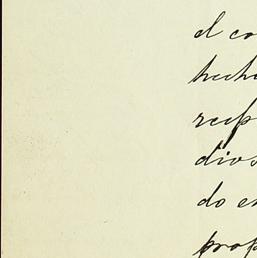 el co
hech
resp
dios
do e
prop